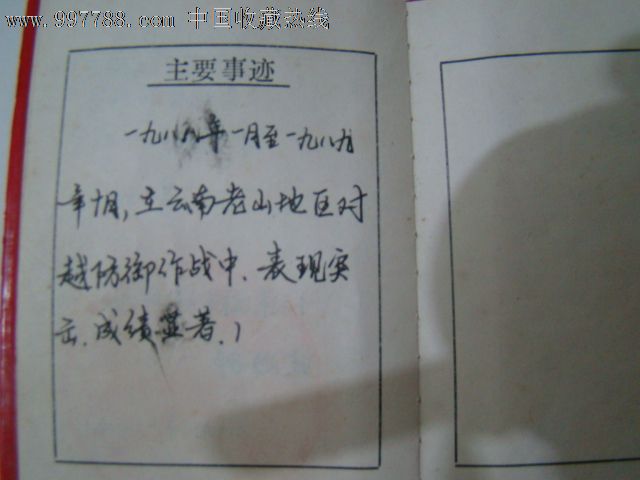 www.997788.com 中国收藏热线
主要事迹
一九八八年一月至一九八九
年十月,在云南老山地区对
越防御作战中、表现突
击、成绩显著、